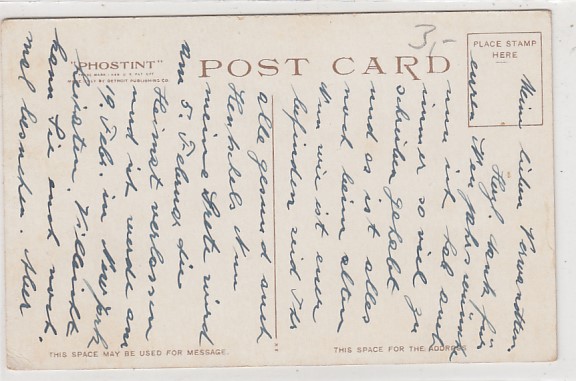 "PHOSTINT"
MADE ONLY BY DETROIT PUBLISHING CO.
POST CARD
3,-
PLACE STAMP
HERE
Meine lieben Verwandten.
Herzl. Dank für
euren Neujahrswünsche
nun ich hab auch
immer so viel zu
schreiben gehabt
und es ist alles
noch beim alten
Nun wie ist euer
befinden seid Ihr
alle gesund auch
Nun
meine Grete wird
am 5. Februar die
Heimat verlassen
und ich werde am
19 Febr. in Newyork
Villeicht
kann Sie euch noch
mal besuchen. Aber
THIS SPACE MAY BE USED FOR MESSAGE.
THIS SPACE FOR THE ADDRESS